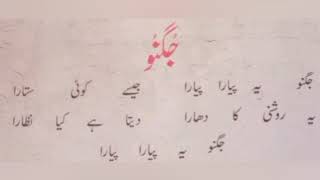 جُگنُو
جگنو یہ پیارا پیارا جیسے کوئی ستارا
یہ روشنی کا دھارا دیتا ہے کیا نظارا
جگنو یہ پیارا پیارا